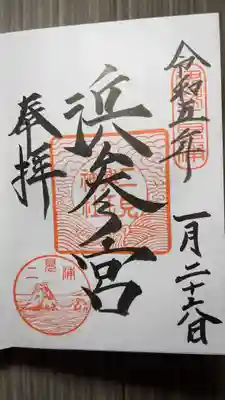 令和五年
一月二十六日
浜参宮
奉拝
二見浦